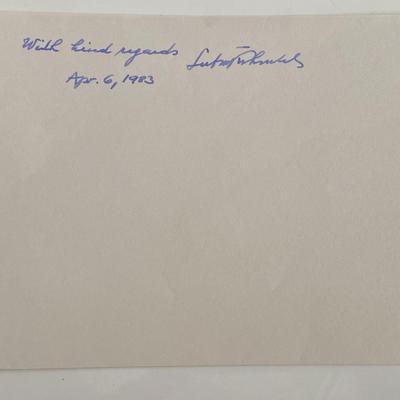 With kind regards
Apr. 6, 1983